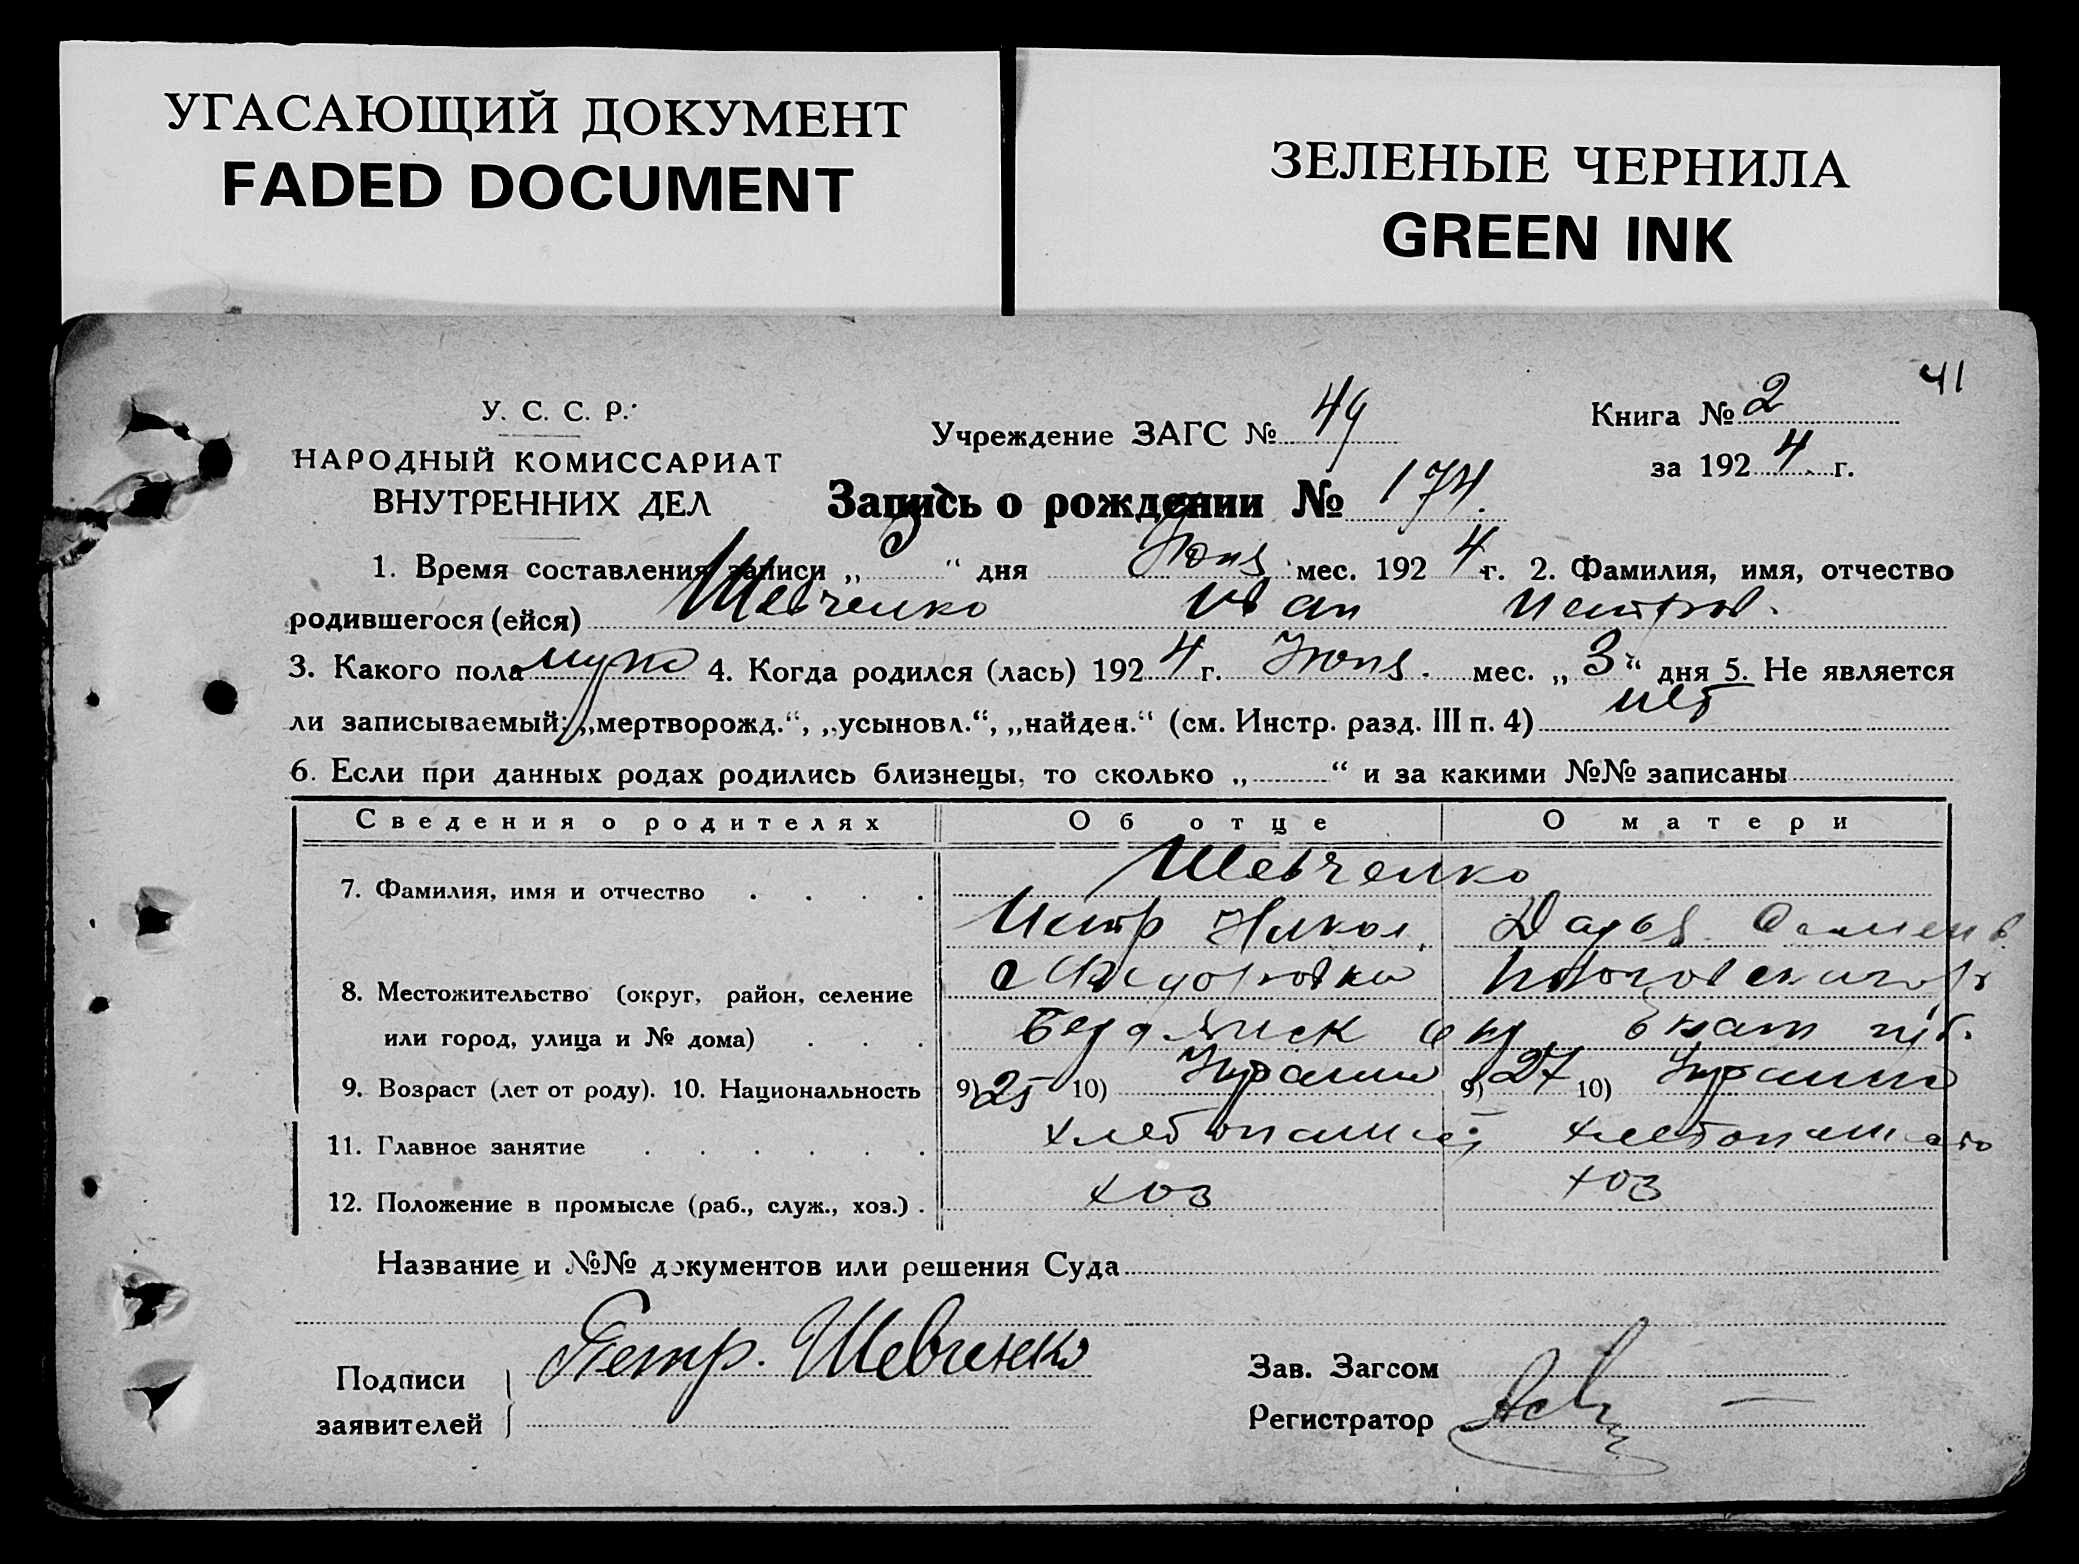 УГАСАЮЩИЙ ДОКУМЕНТ
FADED DOCUMENT
ЗЕЛЕНЫЕ ЧЕРНИЛА
GREEN INK
41
У. С. С. Р.
НАРОДНЫЙ КОМИССАРИАТ
ВНУТРЕННИХ ДЕЛ
Учреждение ЗАГС № 49
Книга № 2
за 1924 г.
Запись о рождении № 174.
1. Время составления записи „ 5 “ дня Июня мес. 1924 г. 2. Фамилия, имя, отчество
родившегося (ейся) Шевченко Иван Петров.
3. Какого пола муж 4. Когда родился (лась) 1924 г. Июня мес. „ 3 “ дня 5. Не является
ли записываемый: „мертворожд.“, „усыновл.“, „найден.“ (см. Инстр. разд. III п. 4) нет
6. Если при данных родах родились близнецы, то сколько „ “ и за какими №№ записаны
Сведения о родителях Об отце О матери
7. Фамилия, имя и отчество Шевченко
Петр Никол. Дарья Семен
8. Местожительство (округ, район, селение
или город, улица и № дома) Бердянск окр Екат губ.
9. Возраст (лет от роду). 10. Национальность 9) 25 10) Украин 9) 27 10) Украин
11. Главное занятие хлебопашец хлебопаш
12. Положение в промысле (раб., служ., хоз.) хоз хоз
Название и №№ документов или решения Суда
Подписи
заявителей
Петр. Шевченко
Зав. Загсом
Регистратор